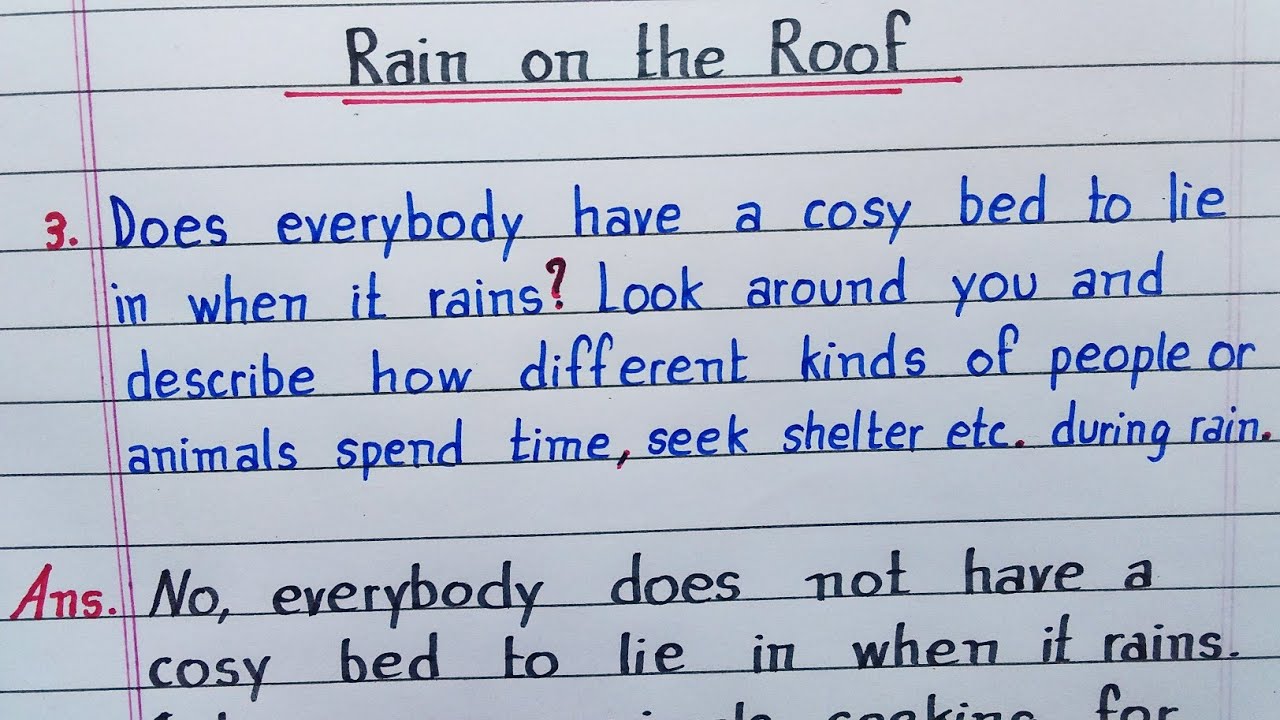 Rain on the Roof
3. Does everybody have a cosy bed to lie
in when it rains? Look around you and
describe how different kinds of people or
animals spend time, seek shelter etc. during rain.
Ans. No, everybody does not have a
cosy bed to lie in when it rains.
for